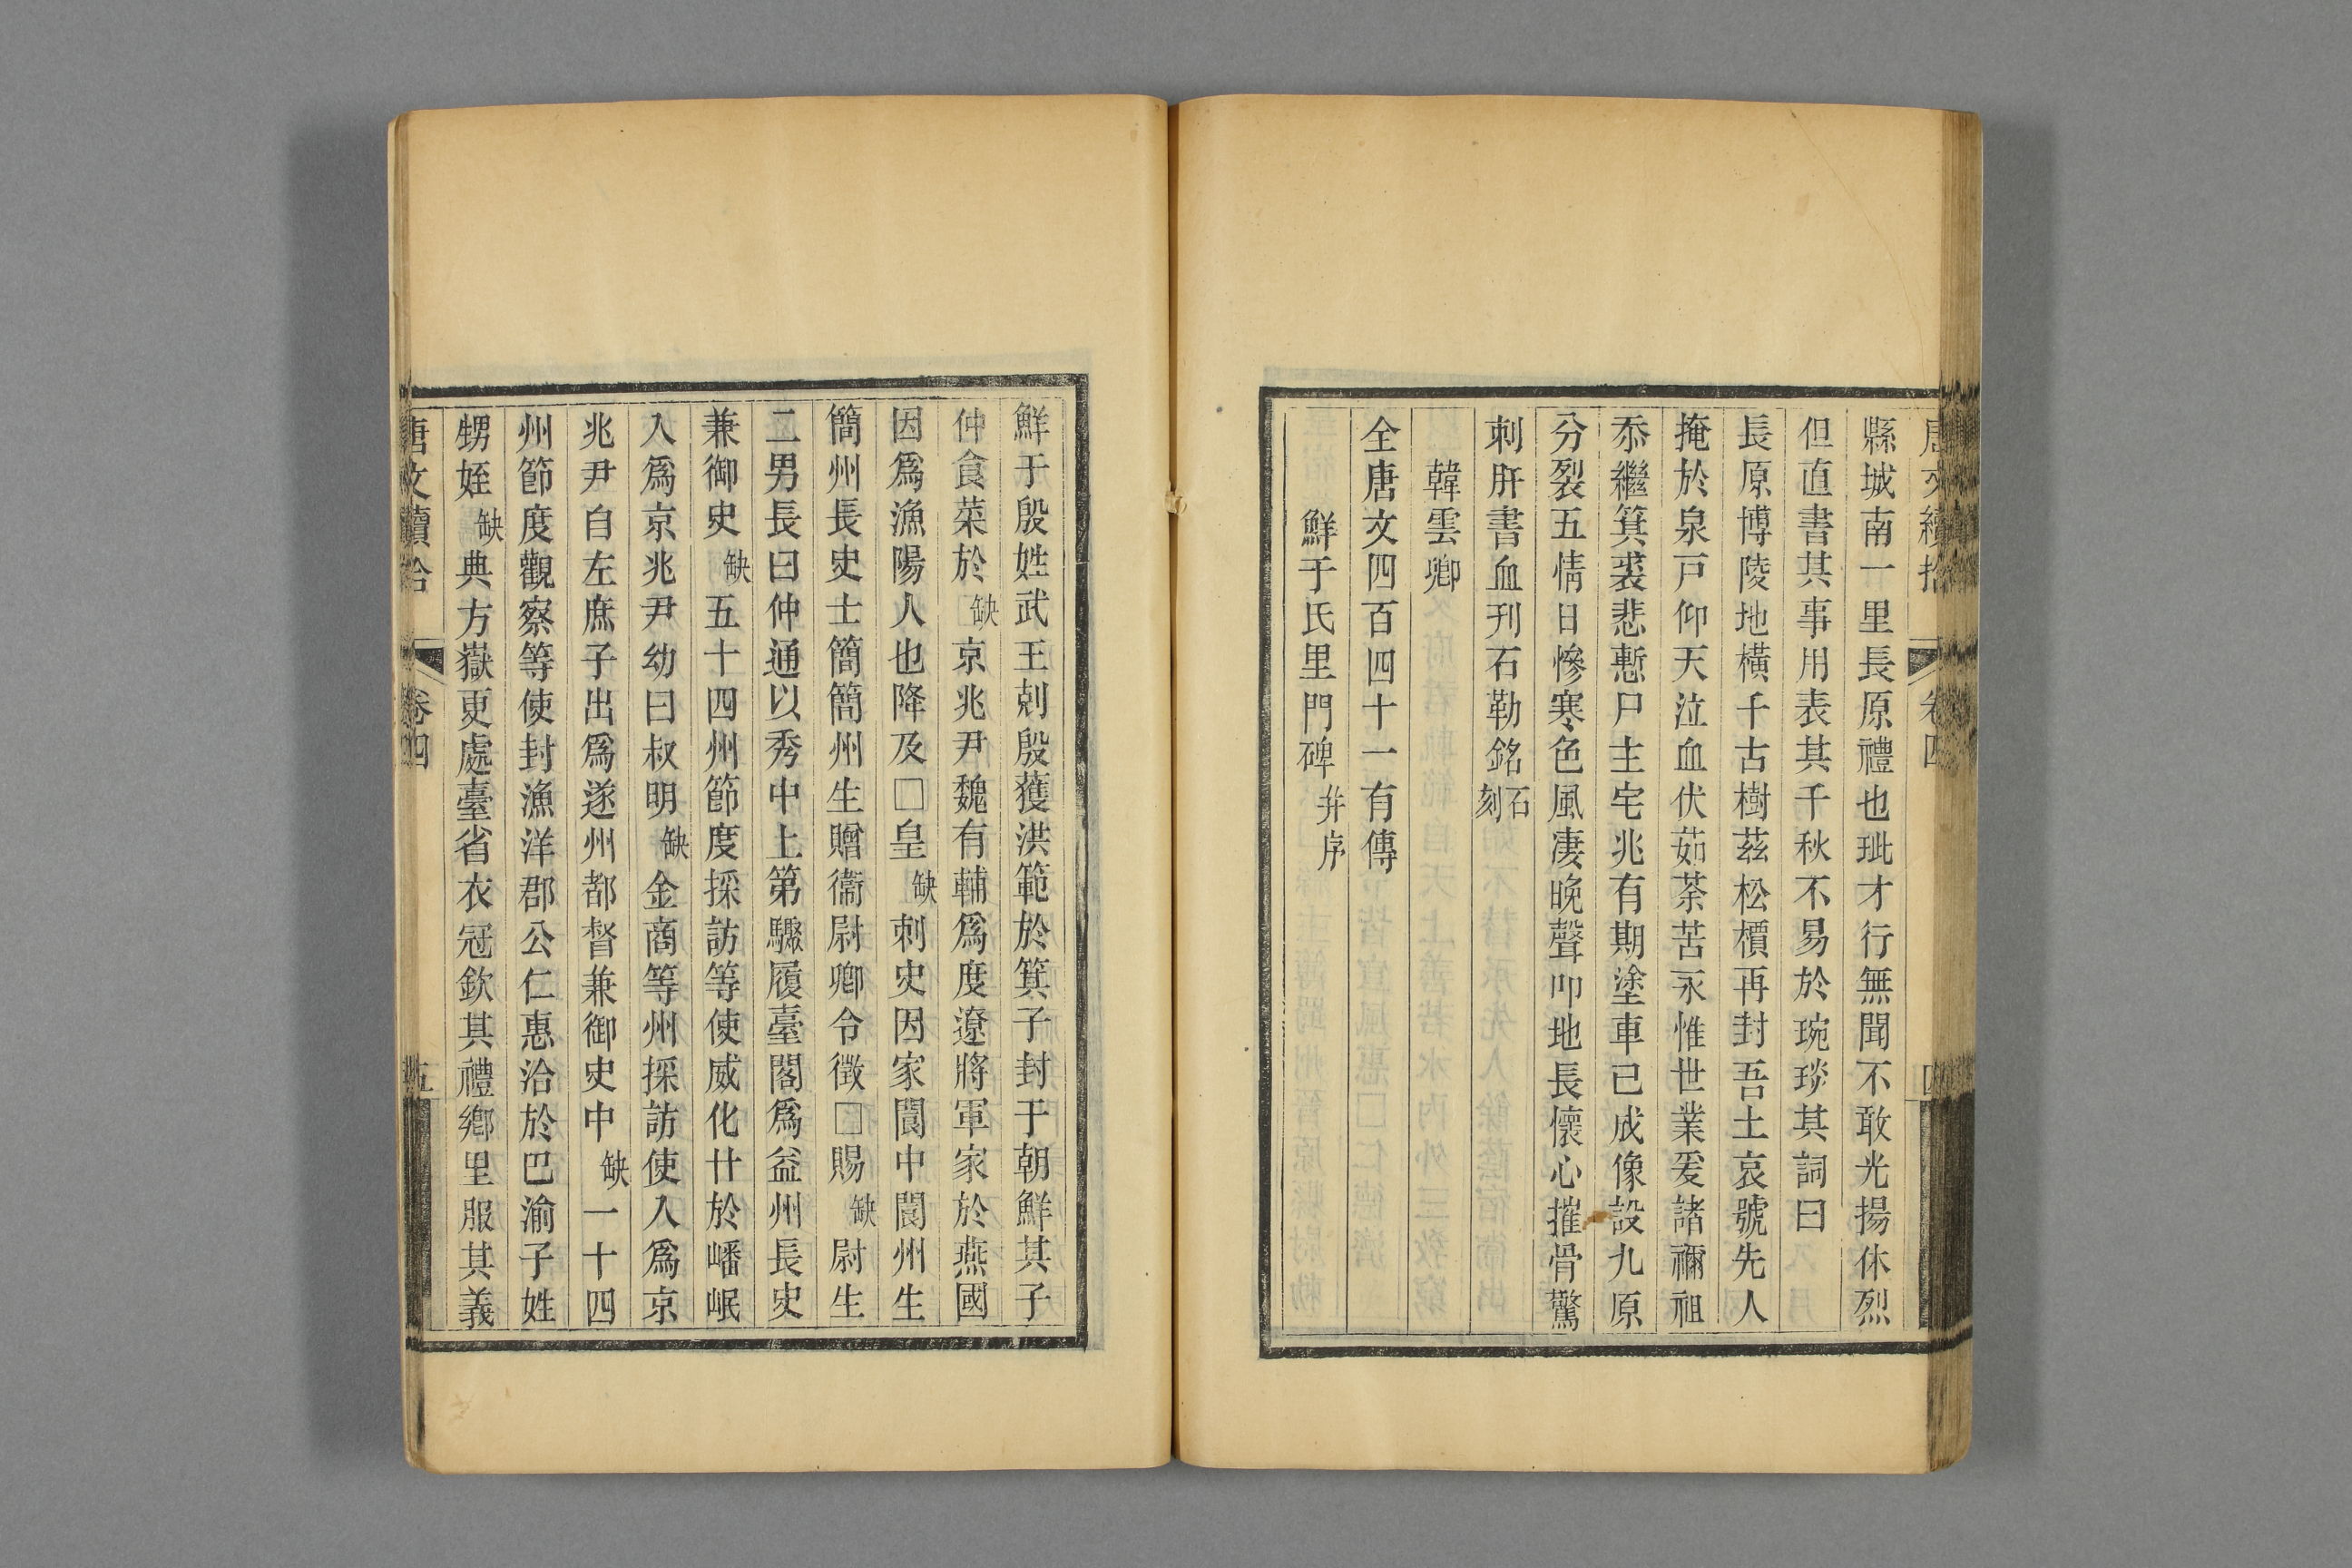 唐文續拾 卷四 四
縣城南一里長原禮也玼才行無聞不敢光揚休烈
但直書其事用表其千秋不易於琬琰其詞曰
長原博陵地橫千古樹茲松檟再封吾土哀號先人
掩於泉戸仰天泣血伏茹荼苦永惟世業爰諸禰祖
忝繼箕裘悲慙尸主宅兆有期塗車已成像設九原
分裂五情日慘寒色風凄晚聲叩地長懷心摧骨驚
刺肝書血刊石勒銘石刻
韓雲卿
全唐文四百四十一有傳
鮮于氏里門碑并序
鮮于殷姓武王剋殷獲洪範於箕子封于朝鮮其子
仲食菜於缺京兆尹魏有輔爲度遼將軍家於燕國
因爲漁陽人也降及□皇缺刺史因家閬中閬州生
簡州長史士簡簡州生贈衞尉卿令徵□賜缺尉生
二男長曰仲通以秀中上第驟履臺閣爲益州長史
兼御史缺五十四州節度採訪等使威化廿於嶓岷
入爲京兆尹幼曰叔明缺金商等州採訪使入爲京
兆尹自左庶子出爲遂州都督兼御史中缺一十四
州節度觀察等使封漁洋郡公仁惠洽於巴渝子姓
甥姪缺典方嶽更處臺省衣冠欽其禮鄉里服其義
唐文續拾 卷四 五